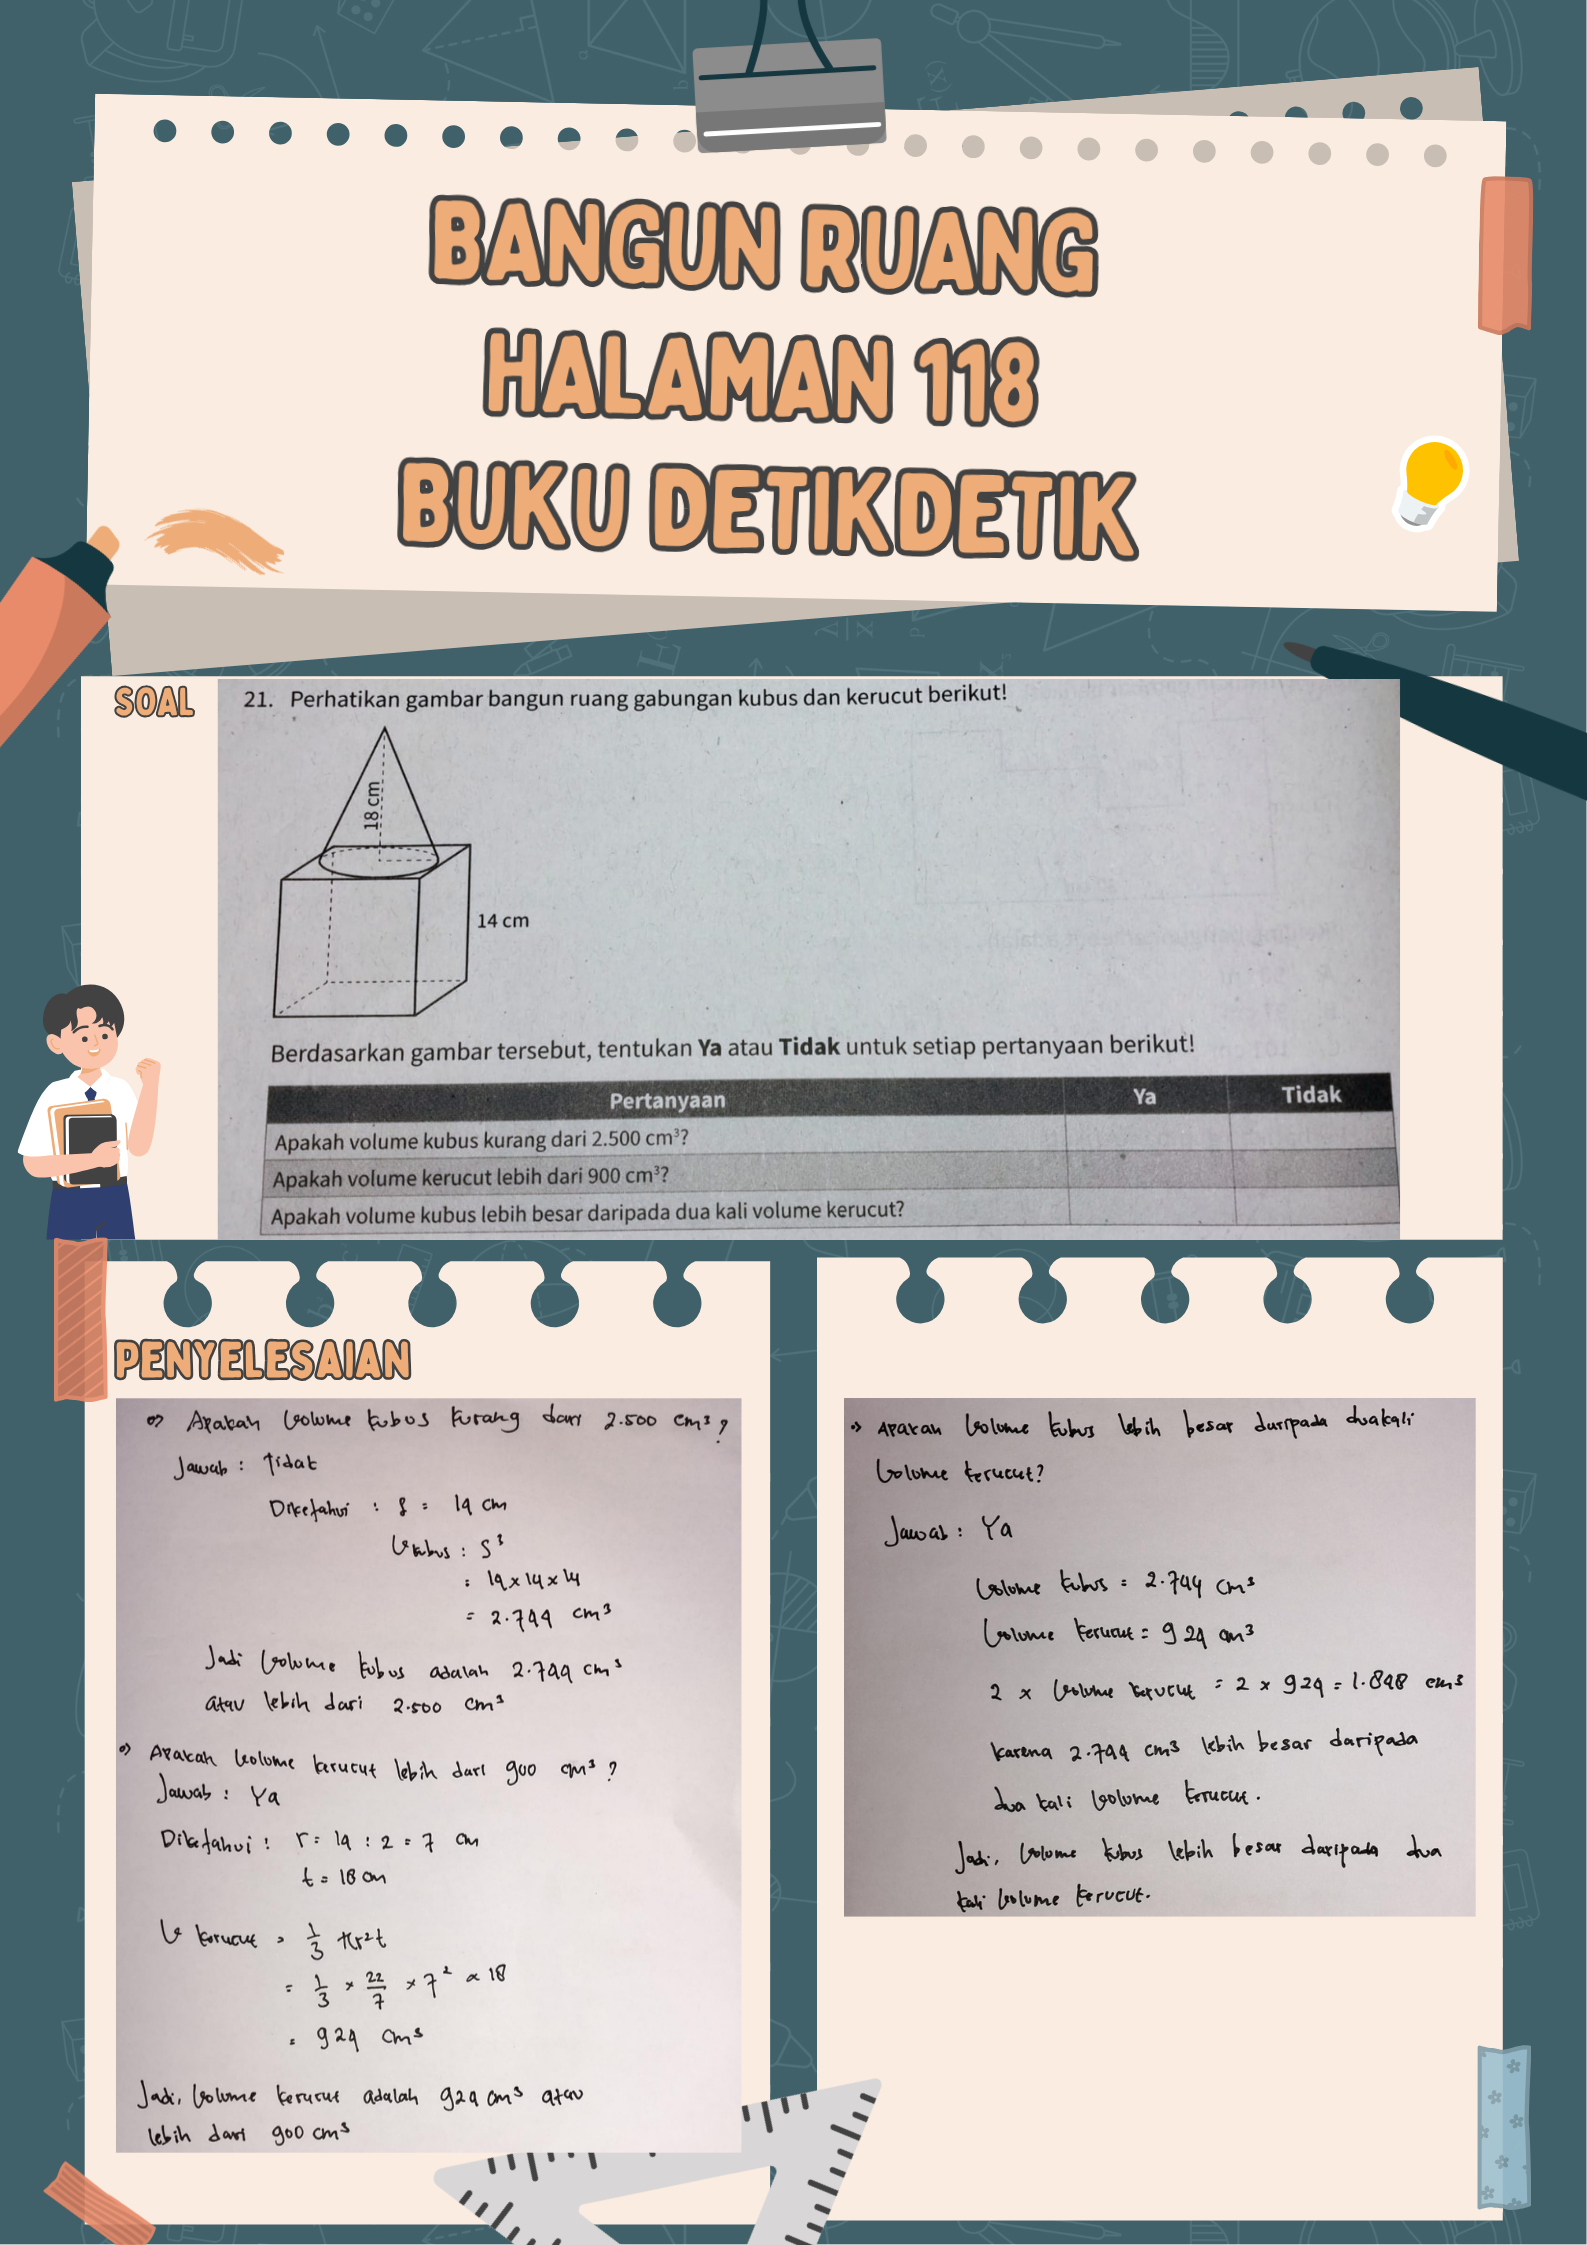 BANGUN RUANG
HALAMAN 118
BUKU DETIKDETIK
SOAL
21. Perhatikan gambar bangun ruang gabungan kubus dan kerucut berikut!
18 cm
14 cm
Berdasarkan gambar tersebut, tentukan Ya atau Tidak untuk setiap pertanyaan berikut!
Pertanyaan Ya Tidak
Apakah volume kubus kurang dari 2.500 cm³?
Apakah volume kerucut lebih dari 900 cm³?
Apakah volume kubus lebih besar daripada dua kali volume kerucut?
PENYELESAIAN
Apakah Volume kubus kurang dari 2.500 cm³?
Jawab : Tidak
Diketahui : s = 14 cm
V kubus : s³
= 14 x 14 x 14
= 2.744 cm³
Jadi Volume kubus adalah 2.744 cm³
atau lebih dari 2.500 cm³
Apakah Volume kerucut lebih dari 900 cm³?
Jawab : Ya
Diketahui : r = 14 : 2 = 7 cm
t = 18 cm
V kerucut = 1/3 πr²t
= 1/3 x 22/7 x 7² x 18
= 924 cm³
Jadi, Volume kerucut adalah 924 cm³ atau
lebih dari 900 cm³
Apakah Volume kubus lebih besar daripada dua kali
Volume kerucut?
Jawab : Ya
Volume kubus = 2.744 cm³
Volume kerucut = 924 cm³
2 x Volume kerucut = 2 x 924 = 1.848 cm³
karena 2.744 cm³ lebih besar daripada
dua kali Volume kerucut.
Jadi, Volume kubus lebih besar daripada dua
kali Volume kerucut.